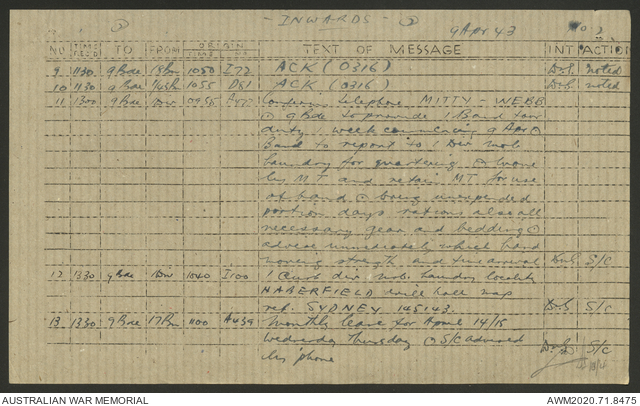 - INWARDS -
9 Apr 43 No 2
No TIME REC'D TO FROM ORIGIN TIME TEXT OF MESSAGE INT ACTION
9 1130 9 Bde 19 Bn 1050 I72 ACK (0316) noted
10 1130 9 Bde 1055 D51 ACK (0316) noted
11 1300 9 Bde Div 0955 Confirm telephone MITTY - WEBB
9 Bde to provide 1 Band tour
duty 1 week commencing 9 Apr
Band to report to 1 Div mob
laundry for quartering move
by MT and retain MT for use
of band bring unexpended
portion days rations also all
necessary gear and bedding
advise immediately which band
moving strength and time arrival S/C
12 1330 9 Bde Div 1040 I100 1 Aust div mob laundry locality
HABERFIELD will hall map
ref. SYDNEY 145143. S/C
13 1330 9 Bde 17 Bn 1100 A439 Monthly leave for April 14/15
Wednesday Thursday S/C advised S/C
by phone
AUSTRALIAN WAR MEMORIAL AWM2020.71.8475